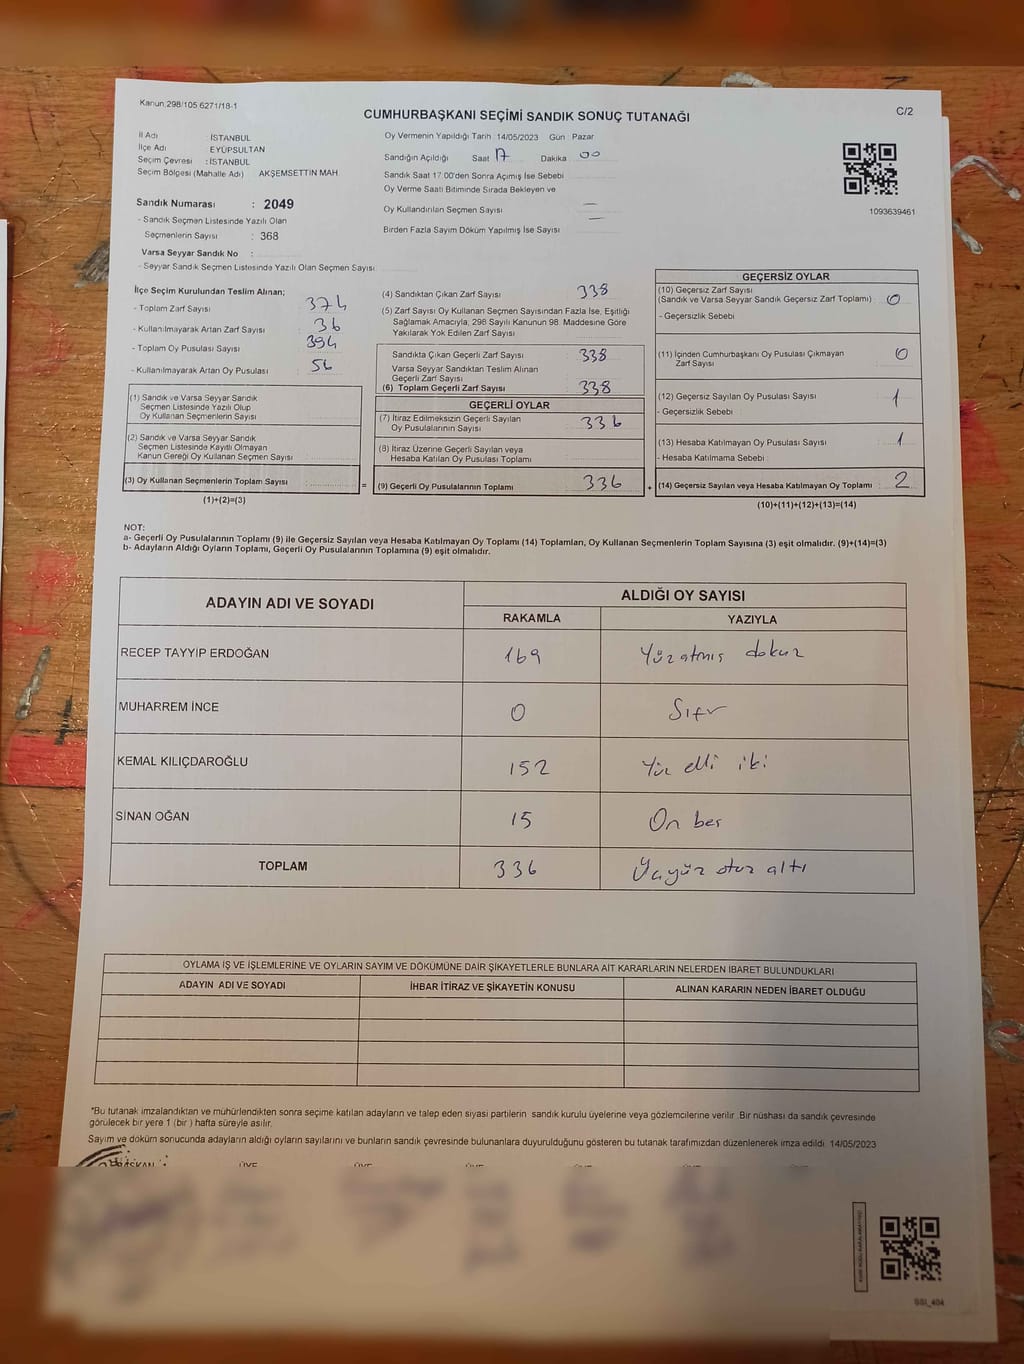 Kanun,298/105 6271/18-1
C/2
CUMHURBAŞKANI SEÇİMİ SANDIK SONUÇ TUTANAĞI
İl Adı İSTANBUL
İlçe Adı EYÜPSULTAN
Seçim Çevresi : İSTANBUL
Seçim Bölgesi (Mahalle Adı) AKŞEMSETTİN MAH
Sandık Numarası : 2049
- Sandık Seçmen Listesinde Yazılı Olan
Seçmenlerin Sayısı : 368
Varsa Seyyar Sandık No :
- Seyyar Sandık Seçmen Listesinde Yazılı Olan Seçmen Sayısı
Oy Vermenin Yapıldığı Tarih 14/05/2023 Gün Pazar
Sandığın Açıldığı Saat 17 Dakika 00
Sandık Saat 17 00'den Sonra Açımış İse Sebebi
Oy Verme Saati Bitiminde Sırada Bekleyen ve
Oy Kullandırılan Seçmen Sayısı —
Birden Fazla Sayım Döküm Yapılmış İse Sayısı —
1093639461
İlçe Seçim Kurulundan Teslim Alınan;
- Toplam Zarf Sayısı 374
- Kullanılmayarak Artan Zarf Sayısı 36
- Toplam Oy Pusulası Sayısı 394
- Kullanılmayarak Artan Oy Pusulası 56
(1) Sandık ve Varsa Seyyar Sandık
Seçmen Listesinde Yazılı Olup
Oy Kullanan Seçmenlerin Sayısı
(2) Sandık ve Varsa Seyyar Sandık
Seçmen Listesinde Kayıtlı Olmayan
Kanun Gereği Oy Kullanan Seçmen Sayısı
(3) Oy Kullanan Seçmenlerin Toplam Sayısı =
(1)+(2)=(3)
(4) Sandıktan Çıkan Zarf Sayısı 338
(5) Zarf Sayısı Oy Kullanan Seçmen Sayısından Fazla İse, Eşitliği
Sağlamak Amacıyla, 298 Sayılı Kanunun 98. Maddesine Göre
Yakılarak Yok Edilen Zarf Sayısı
Sandıkta Çıkan Geçerli Zarf Sayısı 338
Varsa Seyyar Sandıktan Teslim Alınan
Geçerli Zarf Sayısı
(6) Toplam Geçerli Zarf Sayısı 338
GEÇERLİ OYLAR
(7) İtiraz Edilmeksizin Geçerli Sayılan
Oy Pusulalarının Sayısı 336
(8) İtiraz Üzerine Geçerli Sayılan veya
Hesaba Katılan Oy Pusulası Toplamı
(9) Geçerli Oy Pusulalarının Toplamı 336 +
GEÇERSİZ OYLAR
(10) Geçersiz Zarf Sayısı
(Sandık ve Varsa Seyyar Sandık Geçersiz Zarf Toplamı) 0
- Geçersizlik Sebebi
(11) İçinden Cumhurbaşkanı Oy Pusulası Çıkmayan
Zarf Sayısı 0
(12) Geçersiz Sayılan Oy Pusulası Sayısı 1
- Geçersizlik Sebebi
(13) Hesaba Katılmayan Oy Pusulası Sayısı 1
- Hesaba Katılmama Sebebi
(14) Geçersiz Sayılan veya Hesaba Katılmayan Oy Toplamı 2
(10)+(11)+(12)+(13)=(14)
NOT:
a- Geçerli Oy Pusulalarının Toplamı (9) ile Geçersiz Sayılan veya Hesaba Katılmayan Oy Toplamı (14) Toplamları, Oy Kullanan Seçmenlerin Toplam Sayısına (3) eşit olmalıdır. (9)+(14)=(3)
b- Adayların Aldığı Oyların Toplamı, Geçerli Oy Pusulalarının Toplamına (9) eşit olmalıdır.
ADAYIN ADI VE SOYADI ALDIĞI OY SAYISI
RAKAMLA YAZIYLA
RECEP TAYYİP ERDOĞAN 169 Yüz atmış dokuz
MUHARREM İNCE 0 Sıfır
KEMAL KILIÇDAROĞLU 152 Yüz elli iki
SİNAN OĞAN 15 On beş
TOPLAM 336 Üçyüz otuz altı
OYLAMA İŞ VE İŞLEMLERİNE VE OYLARIN SAYIM VE DÖKÜMÜNE DAİR ŞİKAYETLERLE BUNLARA AİT KARARLARIN NELERDEN İBARET BULUNDUKLARI
ADAYIN ADI VE SOYADI İHBAR İTİRAZ VE ŞİKAYETİN KONUSU ALINAN KARARIN NEDEN İBARET OLDUĞU
*Bu tutanak imzalandıktan ve mühürlendikten sonra seçime katılan adayların ve talep eden siyasi partilerin sandık kurulu üyelerine veya gözlemcilerine verilir. Bir nüshası da sandık çevresinde
görülecek bir yere 1 (bir ) hafta süreyle asılır.
Sayım ve döküm sonucunda adayların aldığı oyların sayılarını ve bunların sandık çevresinde bulunanlara duyurulduğunu gösteren bu tutanak tarafımızdan düzenlenerek imza edildi 14/05/2023
BAŞKAN ÜYE ÜYE